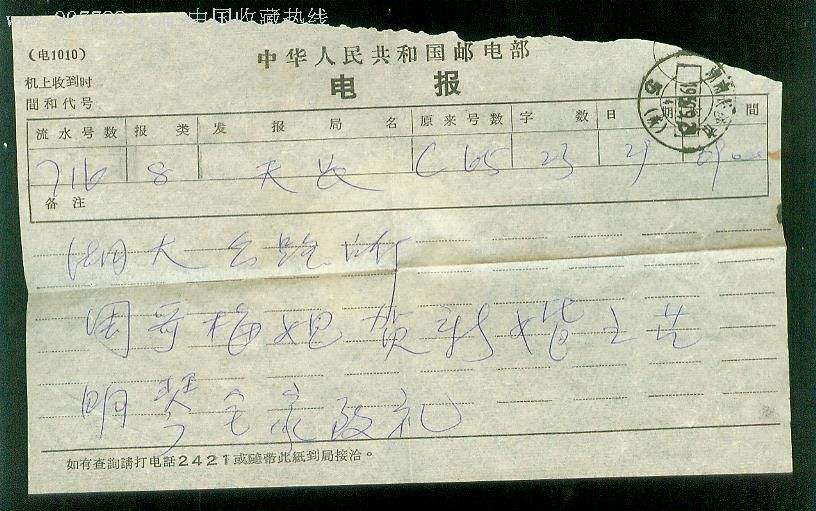 中国收藏热线
(电1010)
中华人民共和国邮电部
机上收到时
間和代号
电 报
流水号数 报类 发报局名 原来号数 字数 日期 間
716 8 天 C 65 23 29 09
备注
湖大
周哥梅姐贺新婚之
明琴全家致礼
如有查詢請打电話2421或隨带此紙到局接洽。